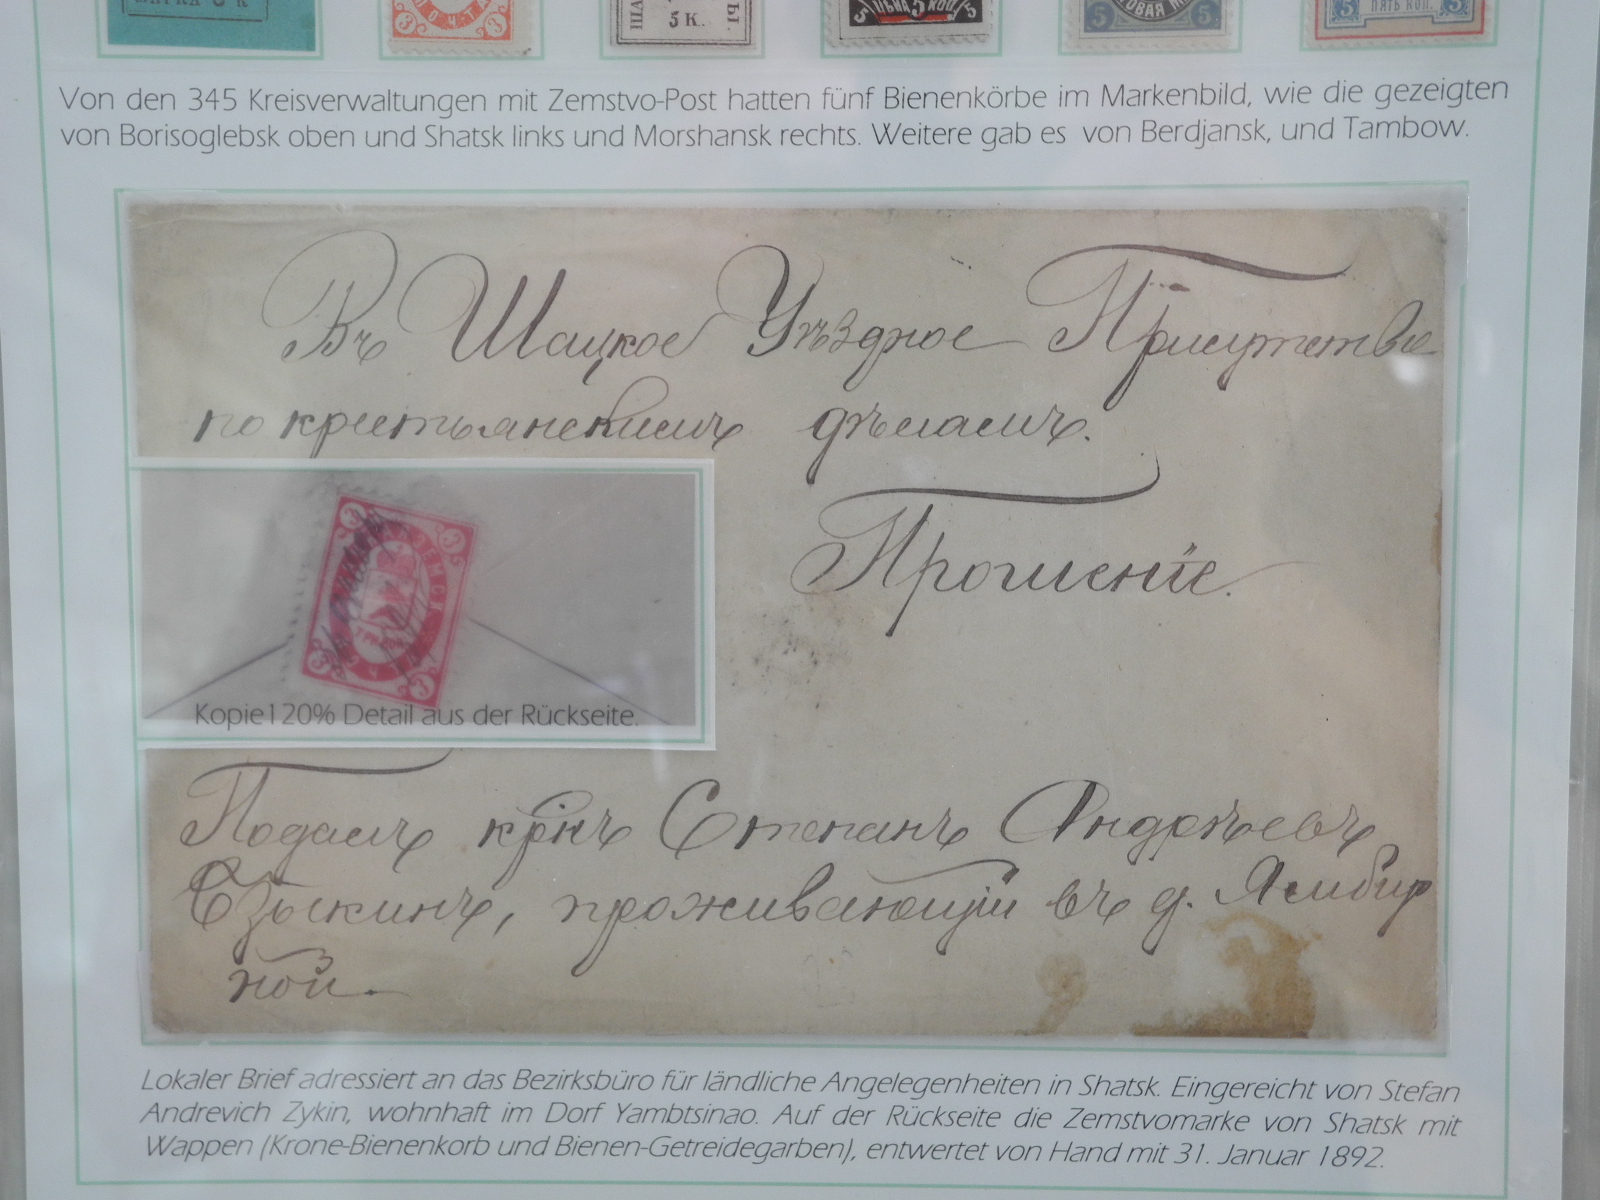 5 К.
5 5
5 5
ПЯТЬ КОП.
5 5
Von den 345 Kreisverwaltungen mit Zemstvo-Post hatten fünf Bienenkörbe im Markenbild, wie die gezeigten
von Borisoglebsk oben und Shatsk links und Morshansk rechts. Weitere gab es von Berdjansk, und Tambow.
Въ Шацкое Уѣздное Присутствіе
по крестьянскимъ дѣламъ.
Прошеніе.
3 3
3 3
Kopie120% Detail aus der Rückseite.
Подалъ крнъ Степанъ Андрѣевъ
Зыкинъ, проживающій въ д. Ямбир
ной.
Lokaler Brief adressiert an das Bezirksbüro für ländliche Angelegenheiten in Shatsk. Eingereicht von Stefan
Andrevich Zykin, wohnhaft im Dorf Yambtsinao. Auf der Rückseite die Zemstvomarke von Shatsk mit
Wappen (Krone-Bienenkorb und Bienen-Getreidegarben), entwertet von Hand mit 31. Januar 1892.